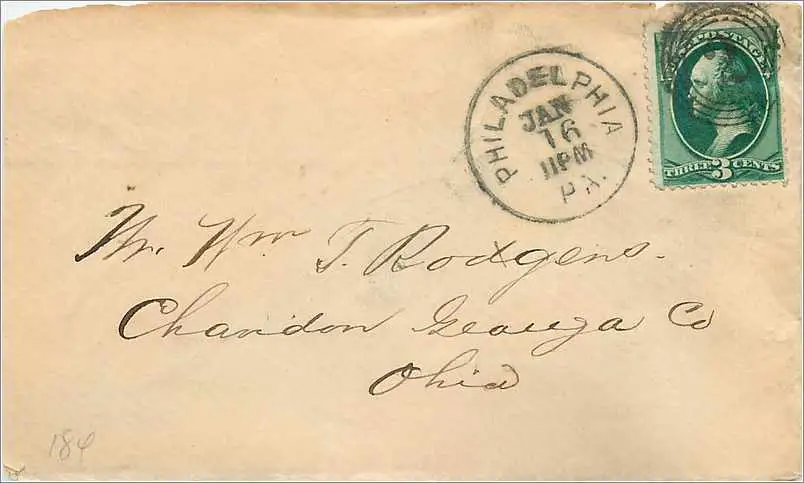 POSTAGE
THREE 3 CENTS
PHILADELPHIA
JAN
16
11PM
PA.
Mr. Wm T. Rodgers.
Chardon Geauga Co
Ohio
184